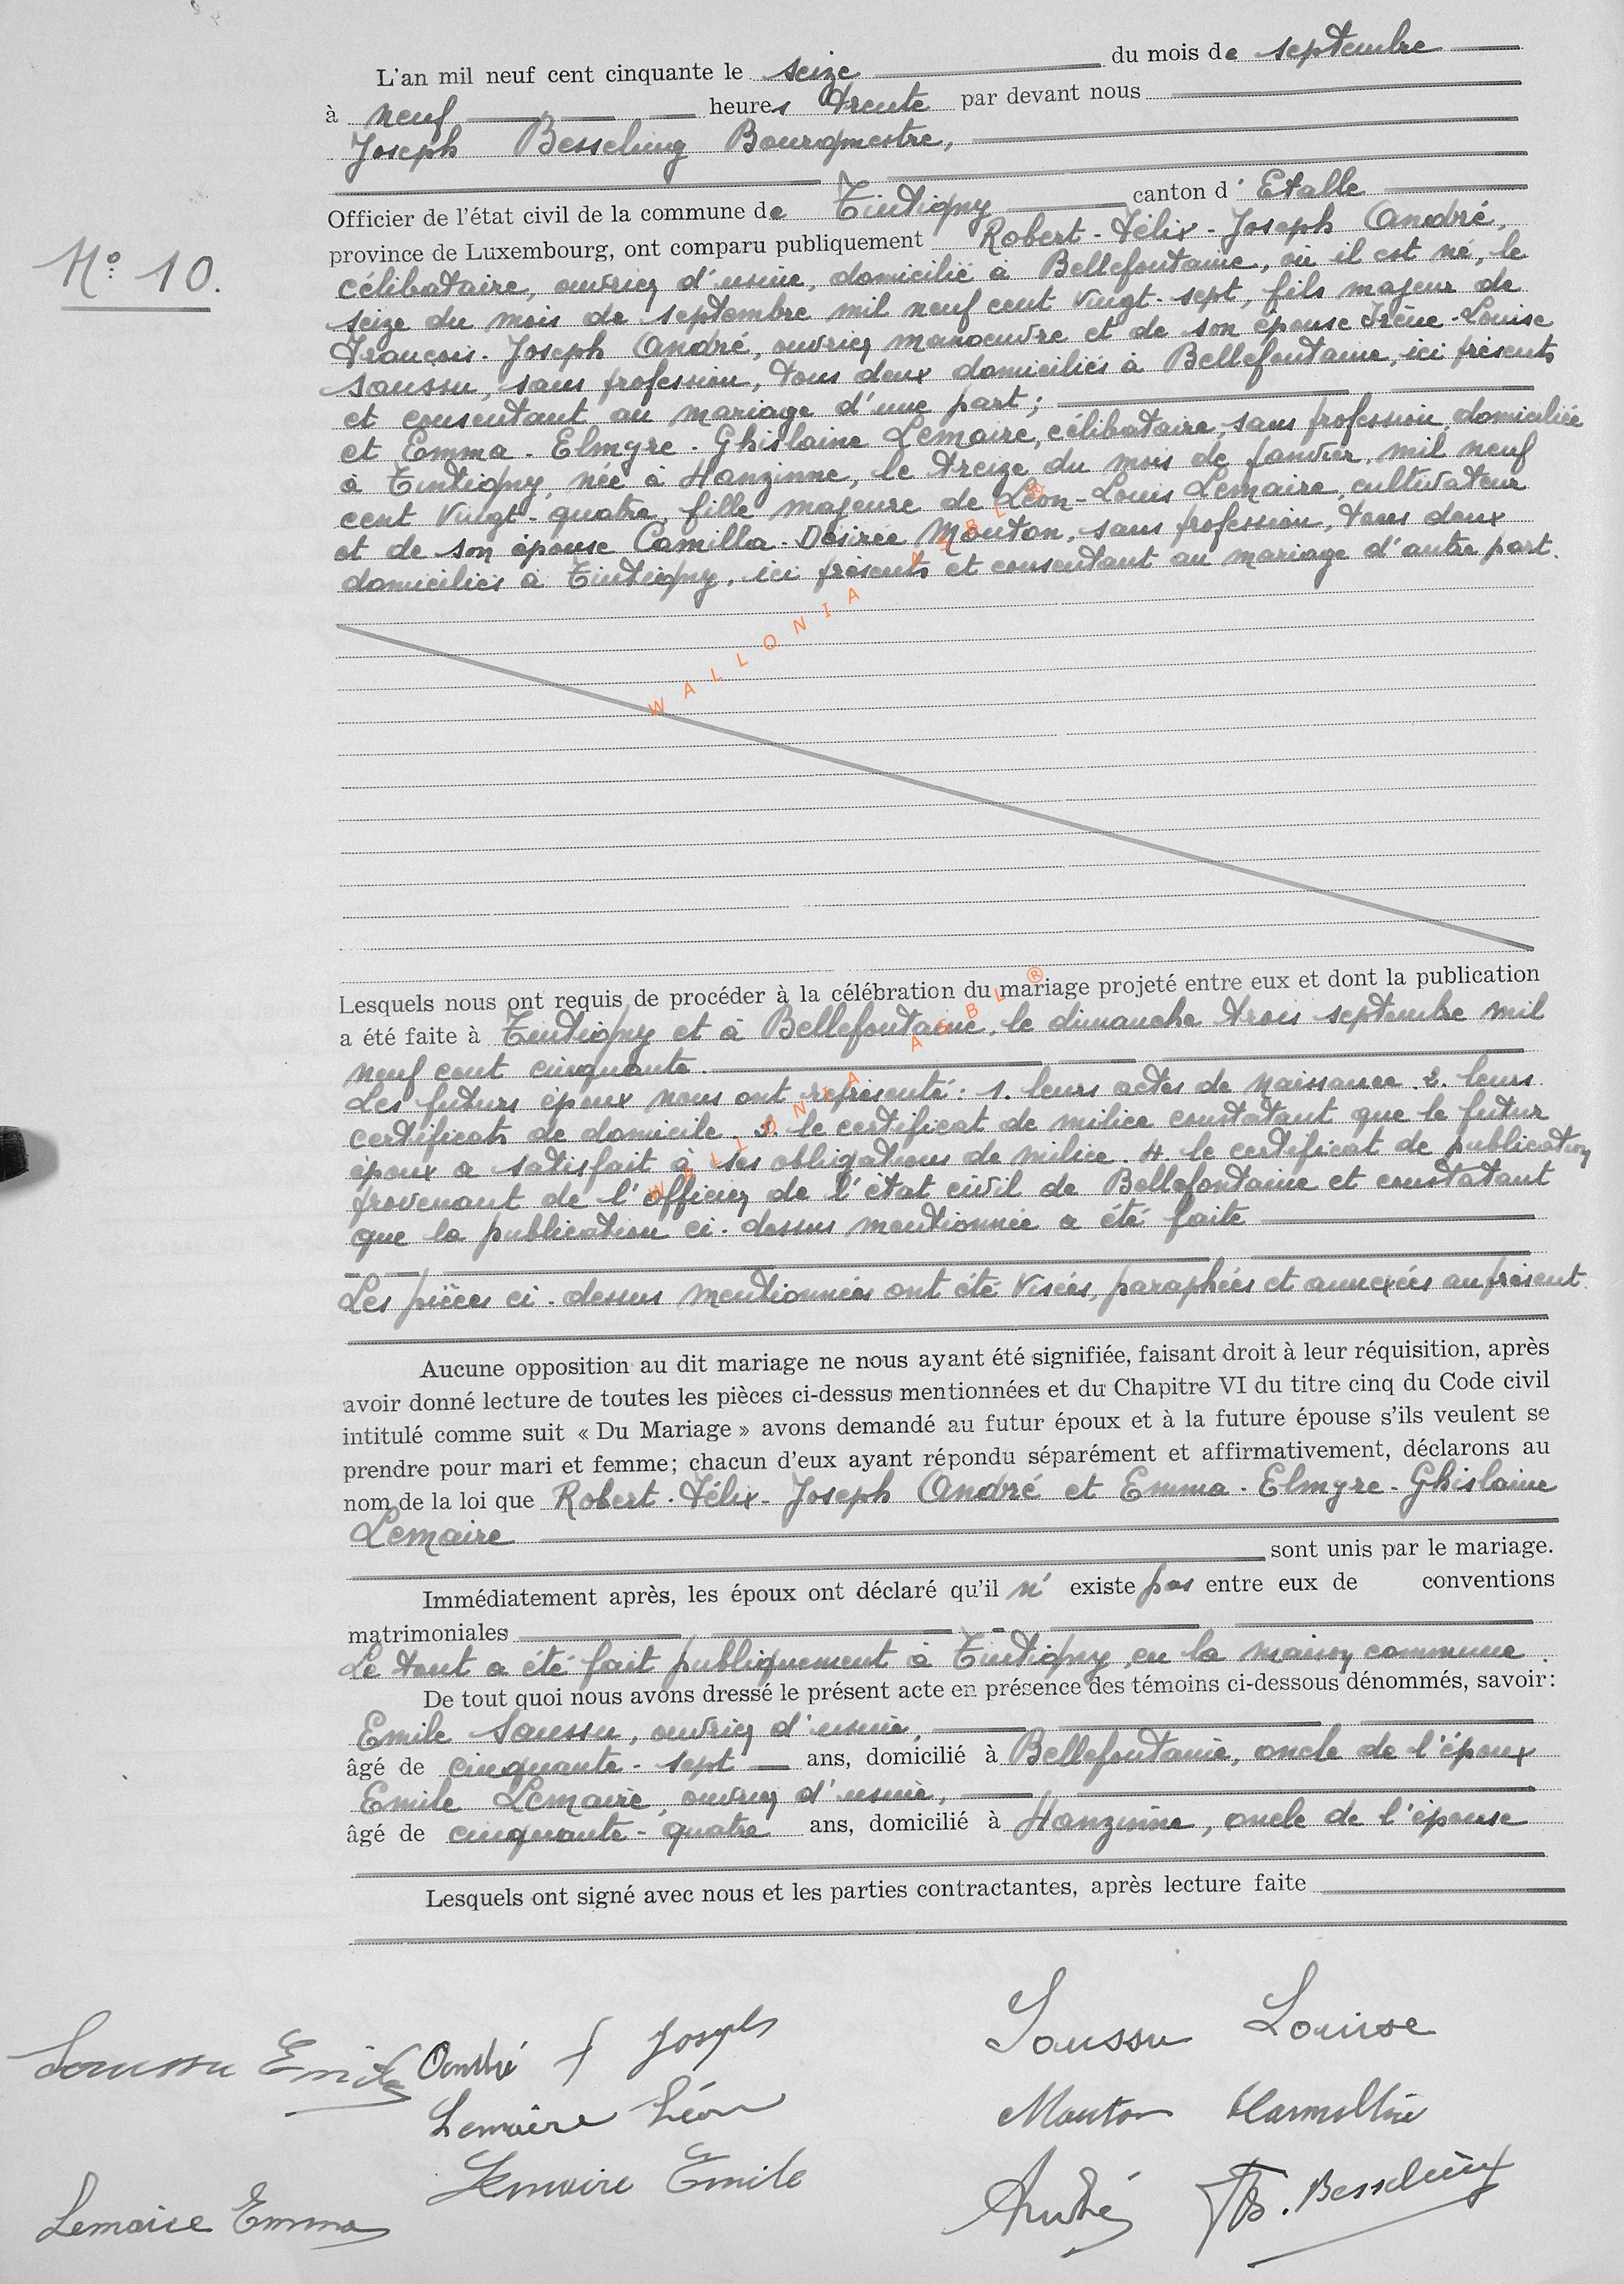 L'an mil neuf cent cinquante le seize du mois de septembre
à neuf heures trente par devant nous
Joseph Besseling Bourgmestre,
Officier de l'état civil de la commune de Tintigny canton d'Etalle
province de Luxembourg, ont comparu publiquement Robert-Félix-Joseph André,
N° 10.
célibataire, ouvrier d'usine, domicilié à Bellefontaine, où il est né, le
seize du mois de septembre mil neuf cent vingt-sept, fils majeur de
François-Joseph André, ouvrier manoeuvre et de son épouse Irène-Louise
Saussu, sans profession, tous deux domiciliés à Bellefontaine, ici présents
et consentant au mariage d'une part;
et Emma-Elmyre-Ghislaine Lemaire, célibataire, sans profession, domiciliée
à Tintigny, née à Hanzinne, le treize du mois de janvier, mil neuf
cent vingt-quatre, fille majeure de Léon-Louis Lemaire, cultivateur
et de son épouse Camilla-Désirée Mouton, sans profession, tous deux
domiciliés à Tintigny, ici présents et consentant au mariage d'autre part.
WALLONIA ASBL ®
Lesquels nous ont requis de procéder à la célébration du mariage projeté entre eux et dont la publication
a été faite à Tintigny et à Bellefontaine, le dimanche trois septembre mil
neuf cent cinquante.
Les futurs époux nous ont représenté: 1. leurs actes de naissance 2. leurs
certificats de domicile 3. le certificat de milice constatant que le futur
époux a satisfait à ses obligations de milice. 4 le certificat de publication
provenant de l'officier de l'état civil de Bellefontaine et constatant
que la publication ci-dessus mentionnée a été faite
WALLONIA ASBL ®
Les pièces ci-dessus mentionnées ont été visées, paraphées et annexées au présent.
Aucune opposition au dit mariage ne nous ayant été signifiée, faisant droit à leur réquisition, après
avoir donné lecture de toutes les pièces ci-dessus mentionnées et du Chapitre VI du titre cinq du Code civil
intitulé comme suit « Du Mariage » avons demandé au futur époux et à la future épouse s'ils veulent se
prendre pour mari et femme; chacun d'eux ayant répondu séparément et affirmativement, déclarons au
nom de la loi que Robert-Félix-Joseph André et Emma-Elmyre-Ghislaine
Lemaire
sont unis par le mariage.
Immédiatement après, les époux ont déclaré qu'il n'existe pas entre eux de conventions
matrimoniales
Le tout a été fait publiquement à Tintigny, en la maison commune.
De tout quoi nous avons dressé le présent acte en présence des témoins ci-dessous dénommés, savoir:
Emile Saussu, ouvrier d'usine,
âgé de cinquante-sept ans, domicilié à Bellefontaine, oncle de l'époux
Emile Lemaire, ouvrier d'usine,
âgé de cinquante-quatre ans, domicilié à Hanzinne, oncle de l'épouse
Lesquels ont signé avec nous et les parties contractantes, après lecture faite
Saussu Louise
Saussu Emile André f Joseph
Lemaire Léon Mouton
Lemaire Emile
Lemaire Emma André Besseling